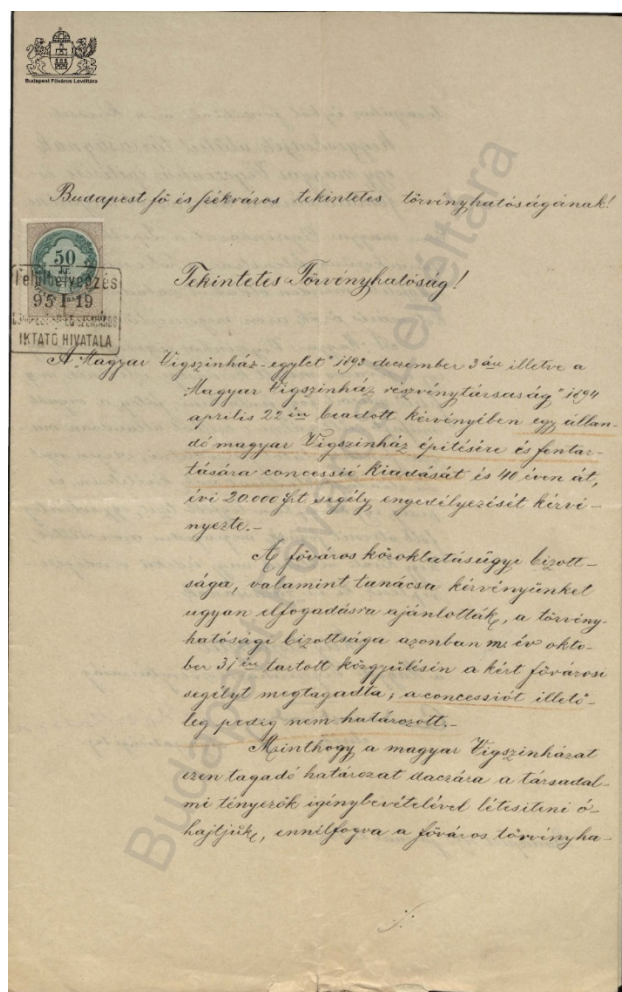 Budapest Főváros Levéltára
Budapest fő és székváros tekintetes törvényhatóságának!
50
kr
Felülbélyegzés
95 I 19
IKTATÓ HIVATALA
Tekintetes Törvényhatóság!
A „Magyar Vigszinház-egylet" 1893 december 3 án illetve a
„Magyar Vigszinház részvénytársaság" 1894
április 22 én beadott kérvényében egy állan-
dó magyar Vigszinház épitésére és fentar-
tására concessió kiadását és 40 éven át,
évi 20.000 frt segély engedélyezését kérvé-
nyezte.-
A főváros közoktatásügyi bizott-
sága, valamint tanácsa kérvényünket
ugyan elfogadásra ajánlották, a törvény-
hatósági bizottsága azonban m. év okto-
ber 31 én tartott közgyülésén a kért fővárosi
segélyt megtagadta, a concessiót illető-
leg pedig nem határozott.-
Minthogy a magyar Vigszinházat
ezen tagadó határozat daczára a társadal-
mi tényezők igénybevételével létesiteni ó-
hajtjuk, ennélfogva a főváros törvényha-
./.
Budapest Főváros Levéltára